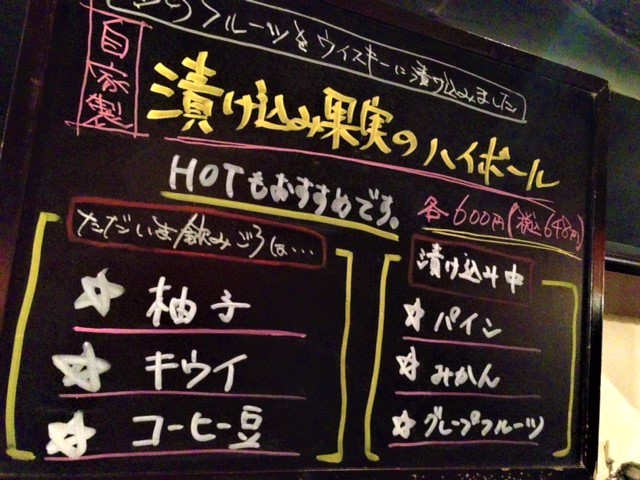 フルーツをウィスキーに漬け込みました
自家製
漬け込み果実のハイボール
HOTもおすすめです。
各600円(税込648円)
ただいま飲みごろは…
柚子
キウイ
コーヒー豆
漬け込み中
パイン
みかん
グレープフルーツ